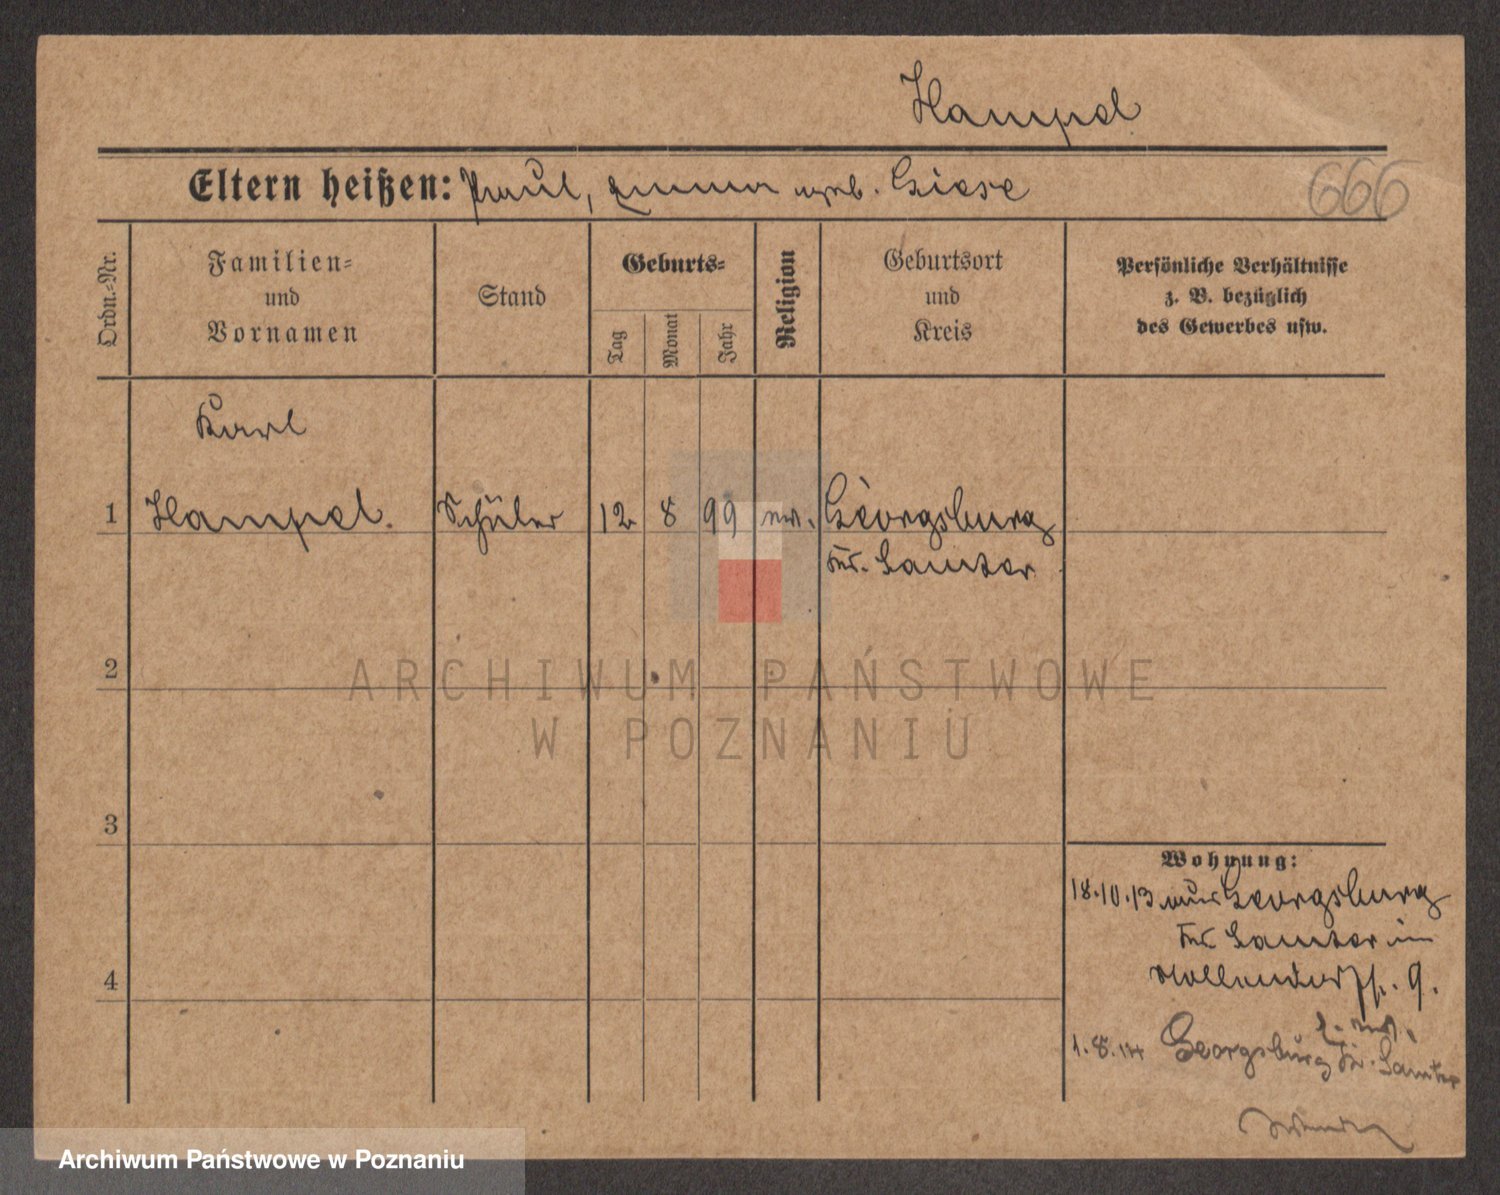 Hampel
Eltern heißen: Paul, Emma geb. Giese
666
Ordn.-Nr.
Familien-
und
Vornamen
Stand
Geburts-
Tag
Monat
Jahr
Religion
Geburtsort
und
Kreis
Persönliche Verhältnisse
z. B. bezüglich
des Gewerbes usw.
Karl
1 Hampel. Schüler 12 8 99 ev. Georgsburg
Kr. Samter
2
3
4
Wohnung:
18.10.13 aus Georgsburg
Kr. Samter in
9.
1.8.14 Georgsburg Kr. Samter
ARCHIWUM PAŃSTWOWE
W POZNANIU
Archiwum Państwowe w Poznaniu